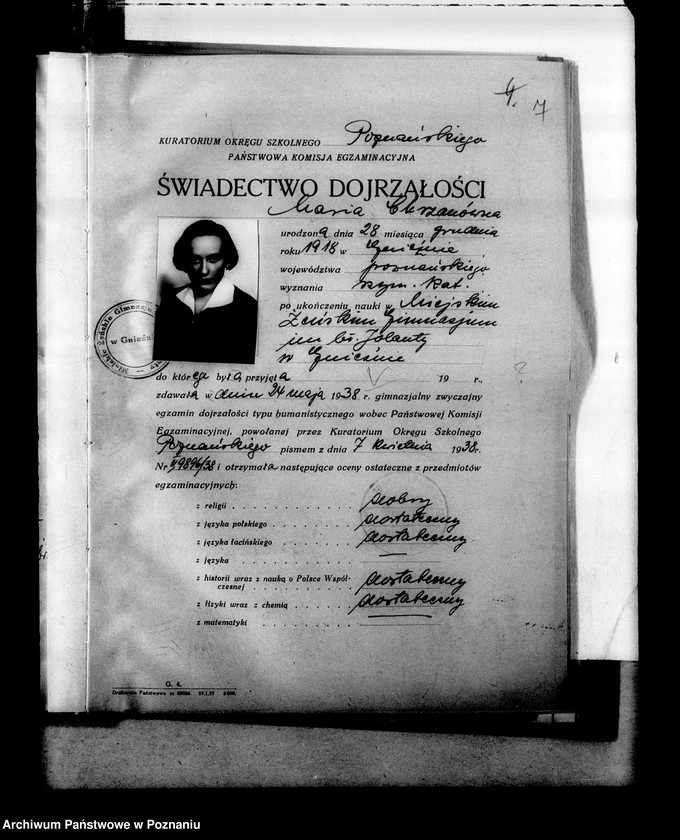 4. 7
KURATORIUM OKRĘGU SZKOLNEGO Poznańskiego
PAŃSTWOWA KOMISJA EGZAMINACYJNA
ŚWIADECTWO DOJRZAŁOŚCI
Maria Chrzanówna
urodzona dnia 28 miesiąca grudnia
roku 1918 w Gnieźnie
województwa poznańskiego
wyznania rzym. kat.
po ukończeniu nauki w Miejskim
Żeńskim Gimnazjum
im. bł. Jolanty
w Gnieźnie
w Gnieźnie
do której była przyjęta 19 r.,
zdawała w dniu 24 maja 1938 r. gimnazjalny zwyczajny
egzamin dojrzałości typu humanistycznego wobec Państwowej Komisji
Egzaminacyjnej, powołanej przez Kuratorium Okręgu Szkolnego
Poznańskiego pismem z dnia 7 kwietnia 1938 r.
Nr II 9896/38 i otrzymała następujące oceny ostateczne z przedmiotów
egzaminacyjnych:
z religii dobry
z języka polskiego dostateczny
z języka łacińskiego dostateczny
z języka —
z historii wraz z nauką o Polsce Współ-
czesnej dostateczny
z fizyki wraz z chemią dostateczny
z matematyki
G. 4.
Drukarnia Państwowa
Archiwum Państwowe w Poznaniu